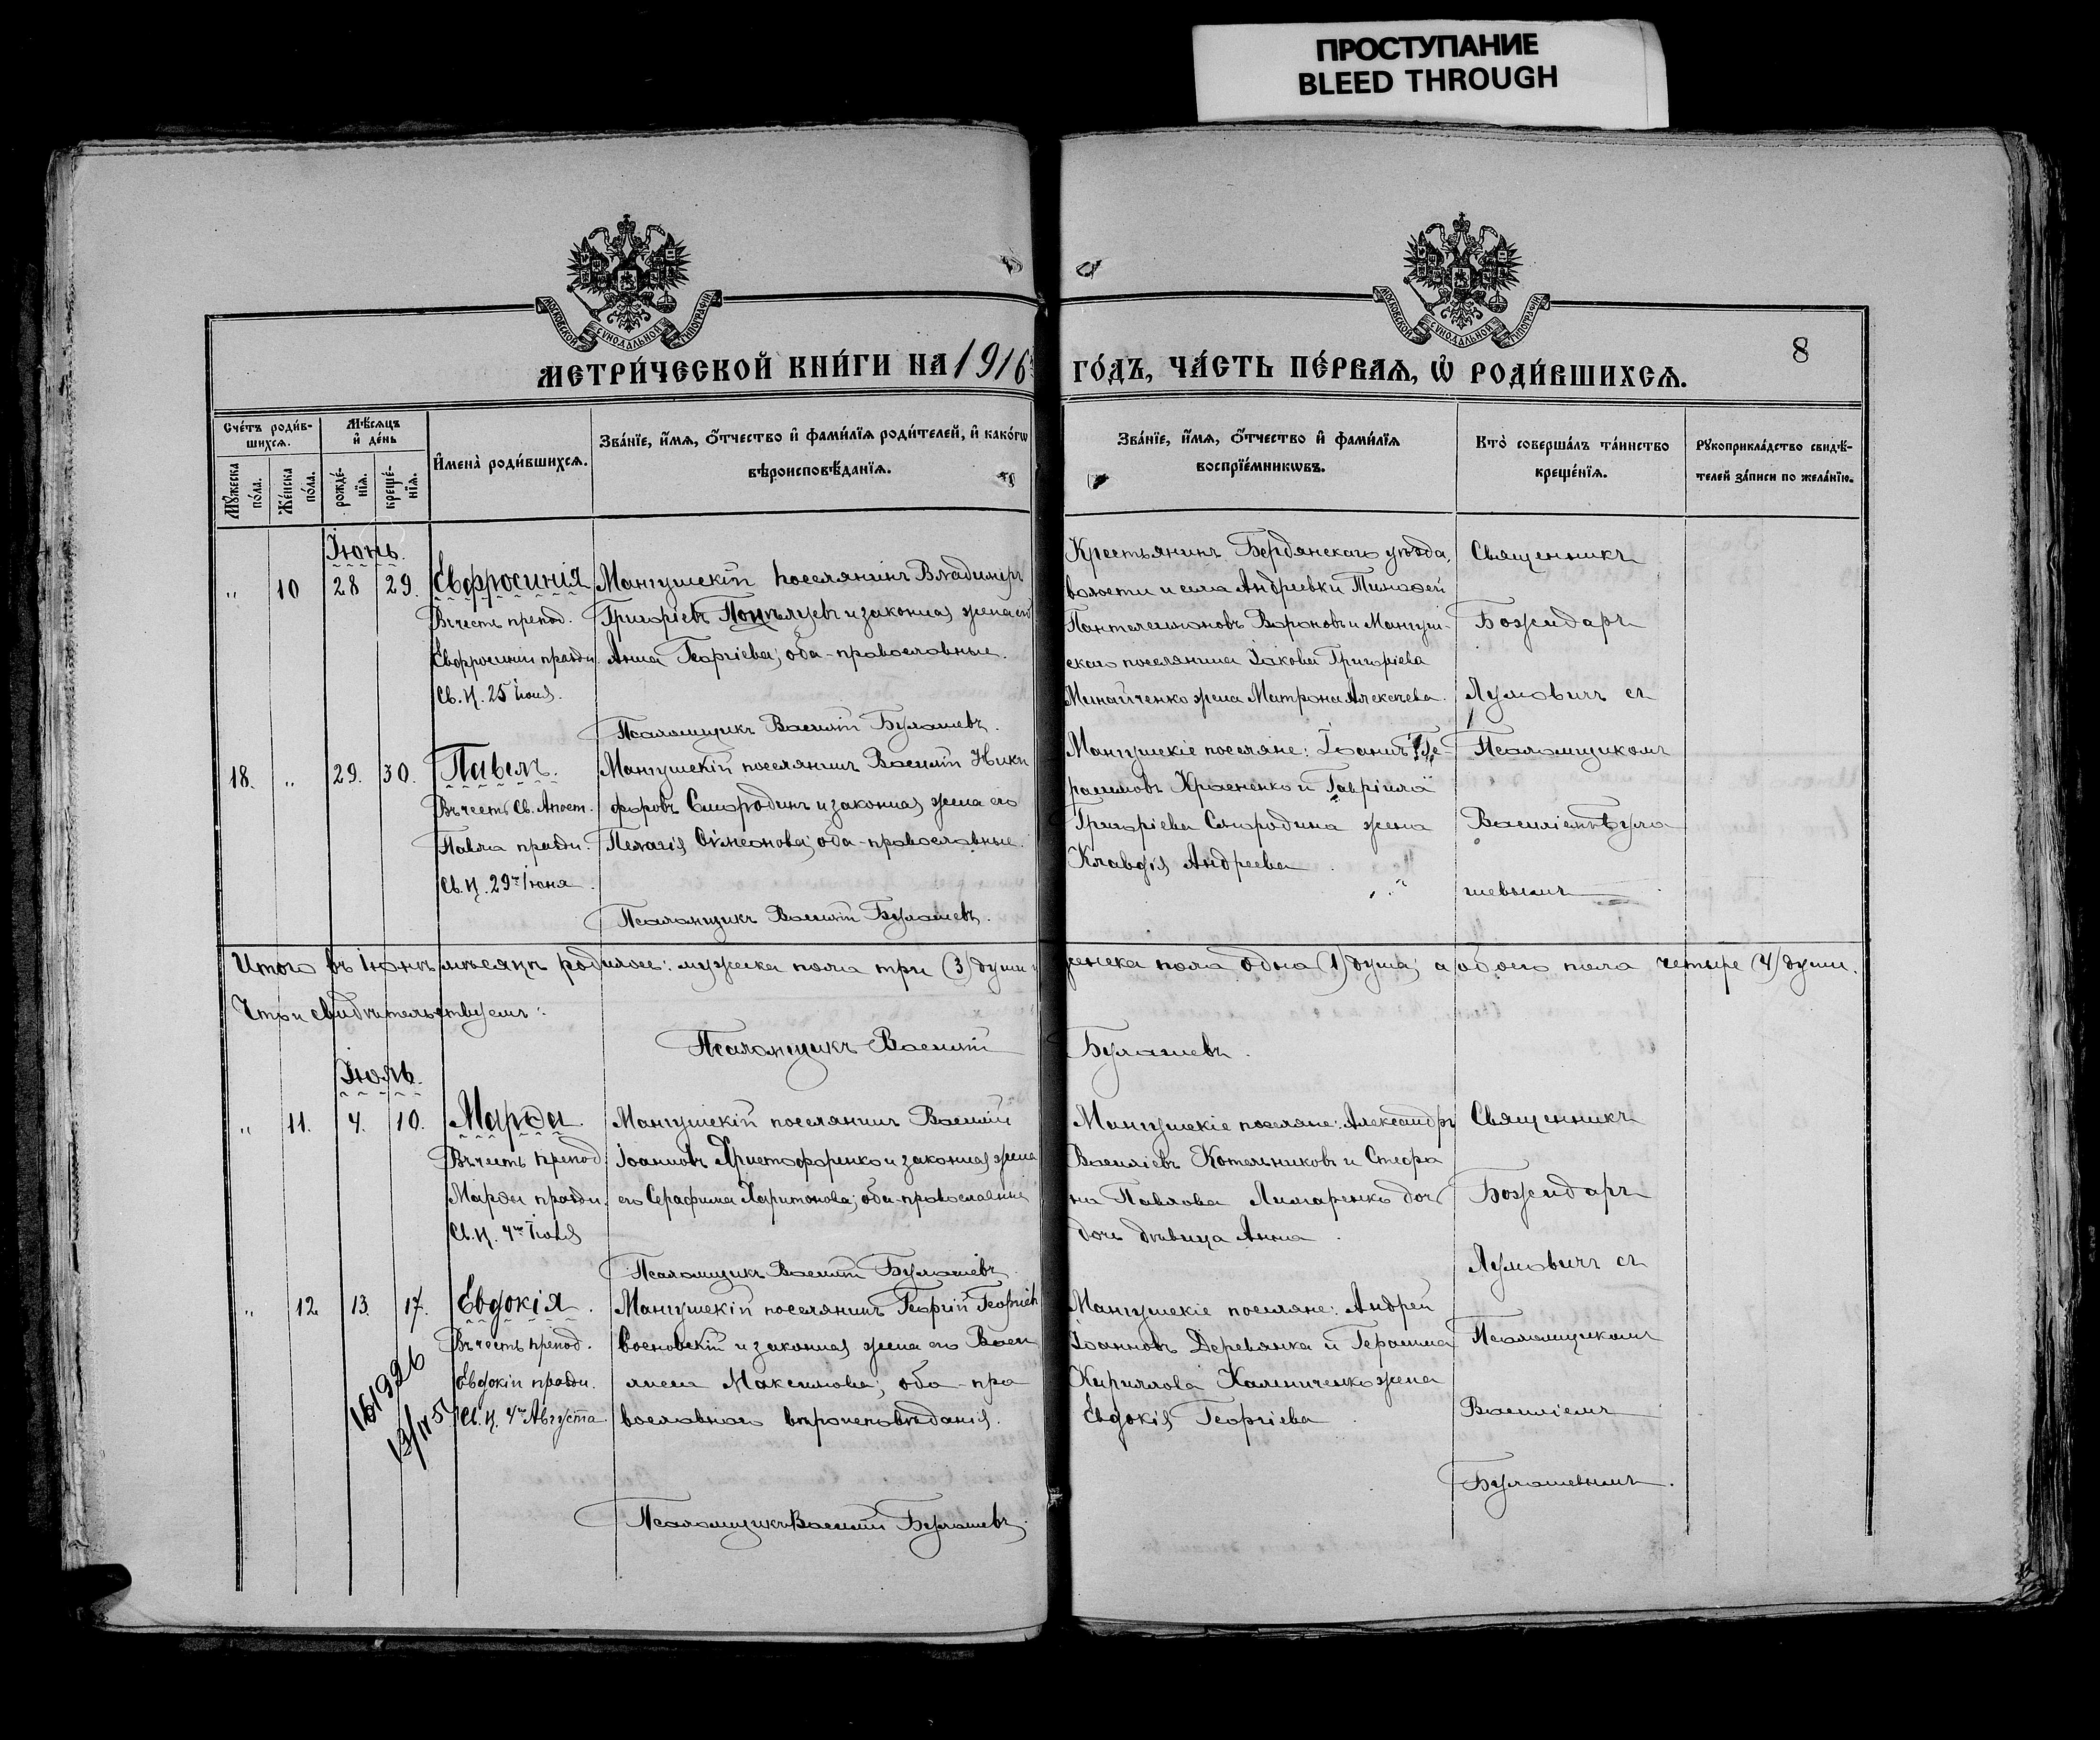 ПРОСТУПАНИЕ
BLEED THROUGH
МОСКОВСКОЙ СУНОДАЛЬНОЙ ТИПОГРАФІИ
МОСКОВСКОЙ СУНОДАЛЬНОЙ ТИПОГРАФІИ
8
МЕТРИ́ЧЕСКОЙ КНИ́ГИ НА 1916
ГО́ДЪ, ЧА́СТЬ ПЕ́РВАѦ, Ѡ РОДИ́ВШИХСѦ.
Сче́тъ роди́в-
шихсѧ.
Мѣ́сѧцъ
и҆ де́нь
Мꙋ́жеска
по́ла.
Же́нска
по́ла.
рожде́-
нїѧ.
креще́-
нїѧ.
И҆мена̀ роди́вшихсѧ.
Зва́нїе, и҆́мѧ, ѻ҆́тчество и҆ фами́лїѧ роди́телей, и҆ како́гѡ
вѣроисповѣ́данїѧ.
Зва́нїе, и҆́мѧ, ѻ҆́тчество и҆ фами́лїѧ
воспрїе́мникѡвъ.
Кто̀ соверша́лъ та́инство
креще́нїѧ.
Рꙋкоприкла́дство свидѣ́-
телей за́писи по жела́нїю.
Іюнь.
" 10 28 29. Евфросинія
Въ честь препод.
Евфросиніи праздн.
Св. Ц. 25 Іюня.
Мангушскій поселянинъ Владимиръ
Григоріевъ и законная жена его
Анна Георгіева; оба - православные.
Псаломщикъ Василій Булашевъ.
Крестьянинъ Бердянскаго уѣзда,
волости и села Андреевки Тимофей
Пантелеимоновъ Вороновъ и Мангуш-
скаго поселянина Іакова Григоріева
Минайченко жена Матрона Алексѣева.
Священникъ
Божидаръ
Лумовичъ съ
Псаломщикомъ
Василіемъ Була
шевымъ
18. " 29. 30. Павелъ.
Въ честь Св. Апост.
Павла праздн.
Св. Ц. 29го Іюня.
Мангушскій поселянинъ Василій Ники
форовъ Смородинъ и законная жена его
Пелагія Сѵмеонова; оба - православные.
Псаломщикъ Василій Булашевъ.
Мангушскіе поселяне: Іоаннъ Ге-
расимовъ Красненко и Гавріила
Григоріева Смородина жена
Клавдія Андреева.
Итого въ Іюнѣ мѣсяцѣ родилось: мужска пола три (3) души и женска пола одна (1) душа; а обоего пола четыре (4) души.
Что и свидѣтельствуемъ:
Псаломщикъ Василій Булашевъ.
Іюль.
" 11. 4. 10. Марѳа
Въ честь препод.
Марѳы праздн.
Св. Ц. 4го Іюля
Мангушскій поселянинъ Василій
Іоанновъ Христофоренко и законная жена
его Серафима Харитонова; оба - православные
Псаломщикъ Василій Булашевъ.
Мангушскіе поселяне: Александръ
Василіевъ Котельниковъ и Стефа
на Павлова Лимаренко доч
дочь дѣвица Анна.
Священникъ
Божидаръ
Лумовичъ съ
Псаломщикомъ
Василіемъ
Булашевымъ.
" 12. 13. 17. Евдокія.
Въ честь препод.
Евдокіи праздн.
Св. Ц. 4го Августа
Мангушскій поселянинъ Георгій Георгіевъ
Восновскій и законная жена его Васи
лиса Максимова; оба - пра
вославнаго вѣроисповѣданія.
Псаломщикъ Василій Булашевъ.
Мангушскіе поселяне: Андрей
Іоанновъ Деревянка и Герасима
Кириллова Калениченко жена
Евдокія Георгіева.